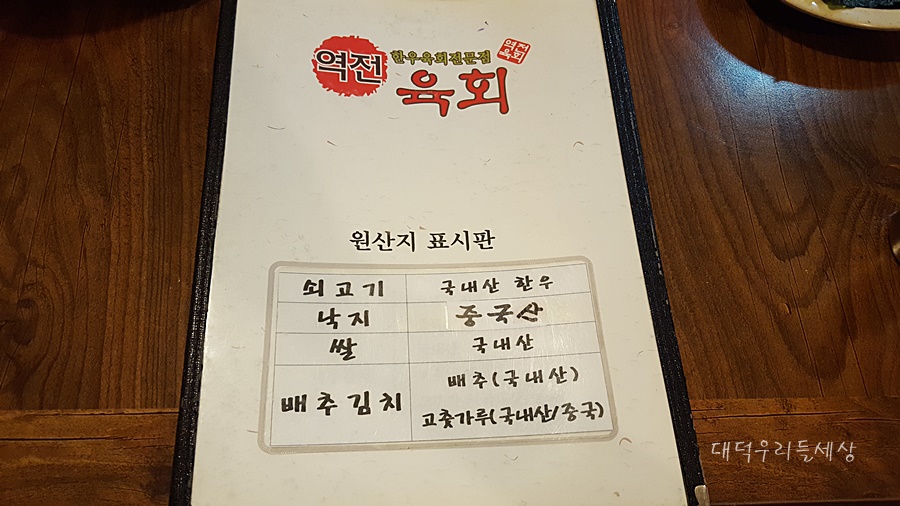 역전
한우육회전문점
역전
육회
육회
원산지 표시판
쇠고기 국내산 한우
낙지 중국산
쌀 국내산
배추김치 배추(국내산)
고춧가루(국내산/중국)
대덕우리들세상